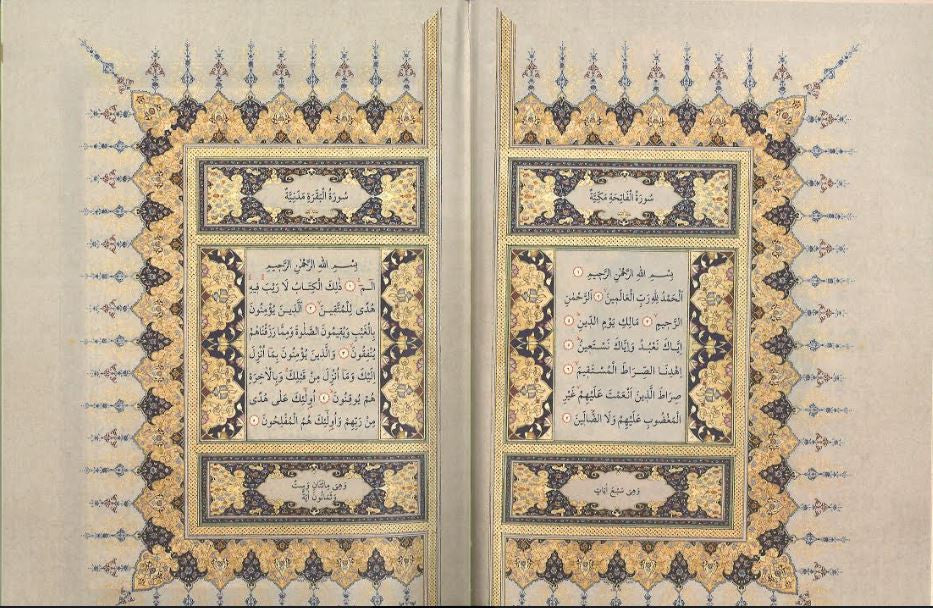 سُورَةُ الْفَاتِحَةِ مَكِّيَّةٌ
بِسْمِ اللهِ الرَّحْمٰنِ الرَّحٖيمِ ١
اَلْحَمْدُ لِلّٰهِ رَبِّ الْعَالَمٖينَ ٢ اَلرَّحْمٰنِ
الرَّحٖيمِ ٣ مَالِكِ يَوْمِ الدّٖينِ ٤
اِيَّاكَ نَعْبُدُ وَاِيَّاكَ نَسْتَعٖينُ ٥
اِهْدِنَا الصِّرَاطَ الْمُسْتَقٖيمَ ٦
صِرَاطَ الَّذٖينَ اَنْعَمْتَ عَلَيْهِمْ غَيْرِ
الْمَغْضُوبِ عَلَيْهِمْ وَلَا الضَّالّٖينَ ٧
وَهِيَ سَبْعُ اٰيَاتٍ
سُورَةُ الْبَقَرَةِ مَدَنِيَّةٌ
بِسْمِ اللهِ الرَّحْمٰنِ الرَّحٖيمِ
الٓمٓ ١ ذٰلِكَ الْكِتَابُ لَا رَيْبَ فٖيهِ
هُدًى لِلْمُتَّقٖينَ ٢ اَلَّذٖينَ يُؤْمِنُونَ
بِالْغَيْبِ وَيُقٖيمُونَ الصَّلٰوةَ وَمِمَّا رَزَقْنَاهُمْ
يُنْفِقُونَ ٣ وَالَّذٖينَ يُؤْمِنُونَ بِمَٓا اُنْزِلَ
اِلَيْكَ وَمَٓا اُنْزِلَ مِنْ قَبْلِكَ وَبِالْاٰخِرَةِ
هُمْ يُوقِنُونَ ٤ اُولٰٓئِكَ عَلٰى هُدًى
مِنْ رَبِّهِمْ وَاُولٰٓئِكَ هُمُ الْمُفْلِحُونَ ٥
وَهِيَ مِائَتَانِ وَسِتٌّ
وَثَمَانُونَ اٰيَةً